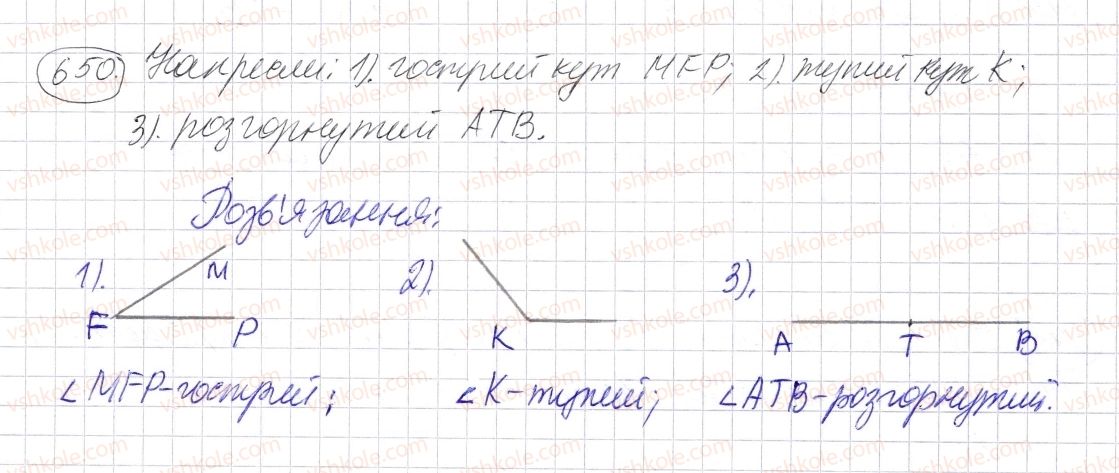 650. Накресли: 1). гострий кут MFP; 2). тупий кут K;
3). розгорнутий ATB.
Розв'язання:
1). 2). 3).
M
F P K A T B
∠MFP-гострий; ∠K-тупий; ∠ATB-розгорнутий.